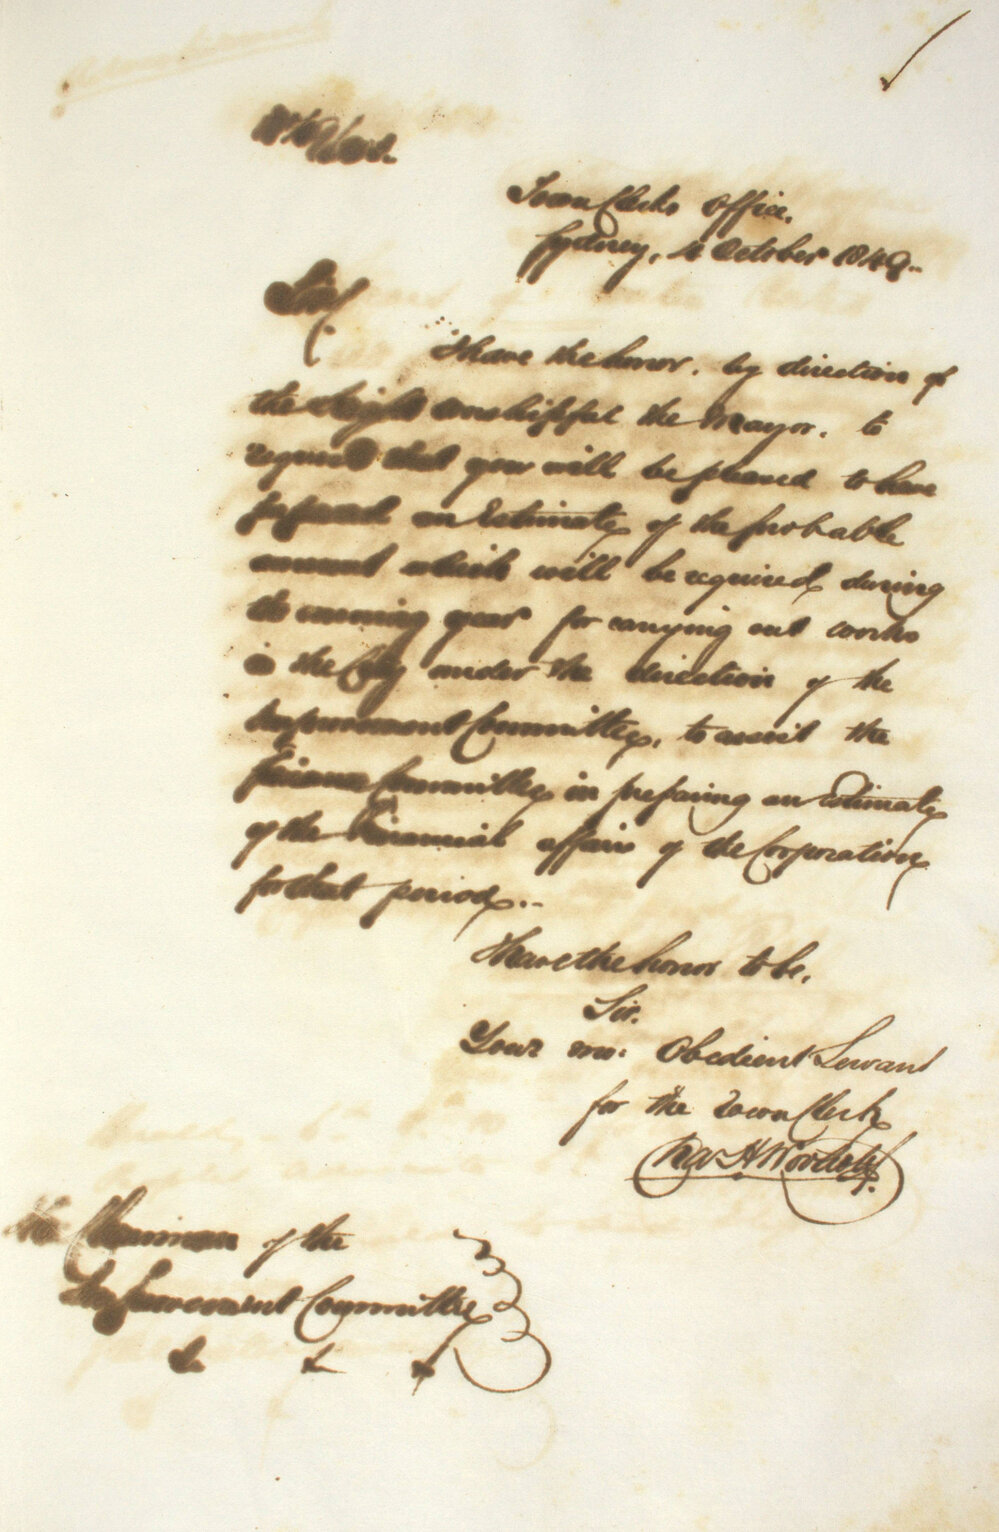 Town Clerks Office.
Sydney, 4 October 1849..
Sir
I have the honor, by direction of
the Right Worshipful the Mayor, to
request that you will be pleased to have
prepared an Estimate of the probable
amount which will be required during
the ensuing year for carrying out works
in the City under the direction of the
Improvement Committee, to assist the
Finance Committee in preparing an estimate
of the Financial affairs of the Corporation
for that period..
I have the honor to be,
Sir.
Your mo: Obedient Servant
for the Town Clerk
The Chairman of the
Improvement Committee
& & &